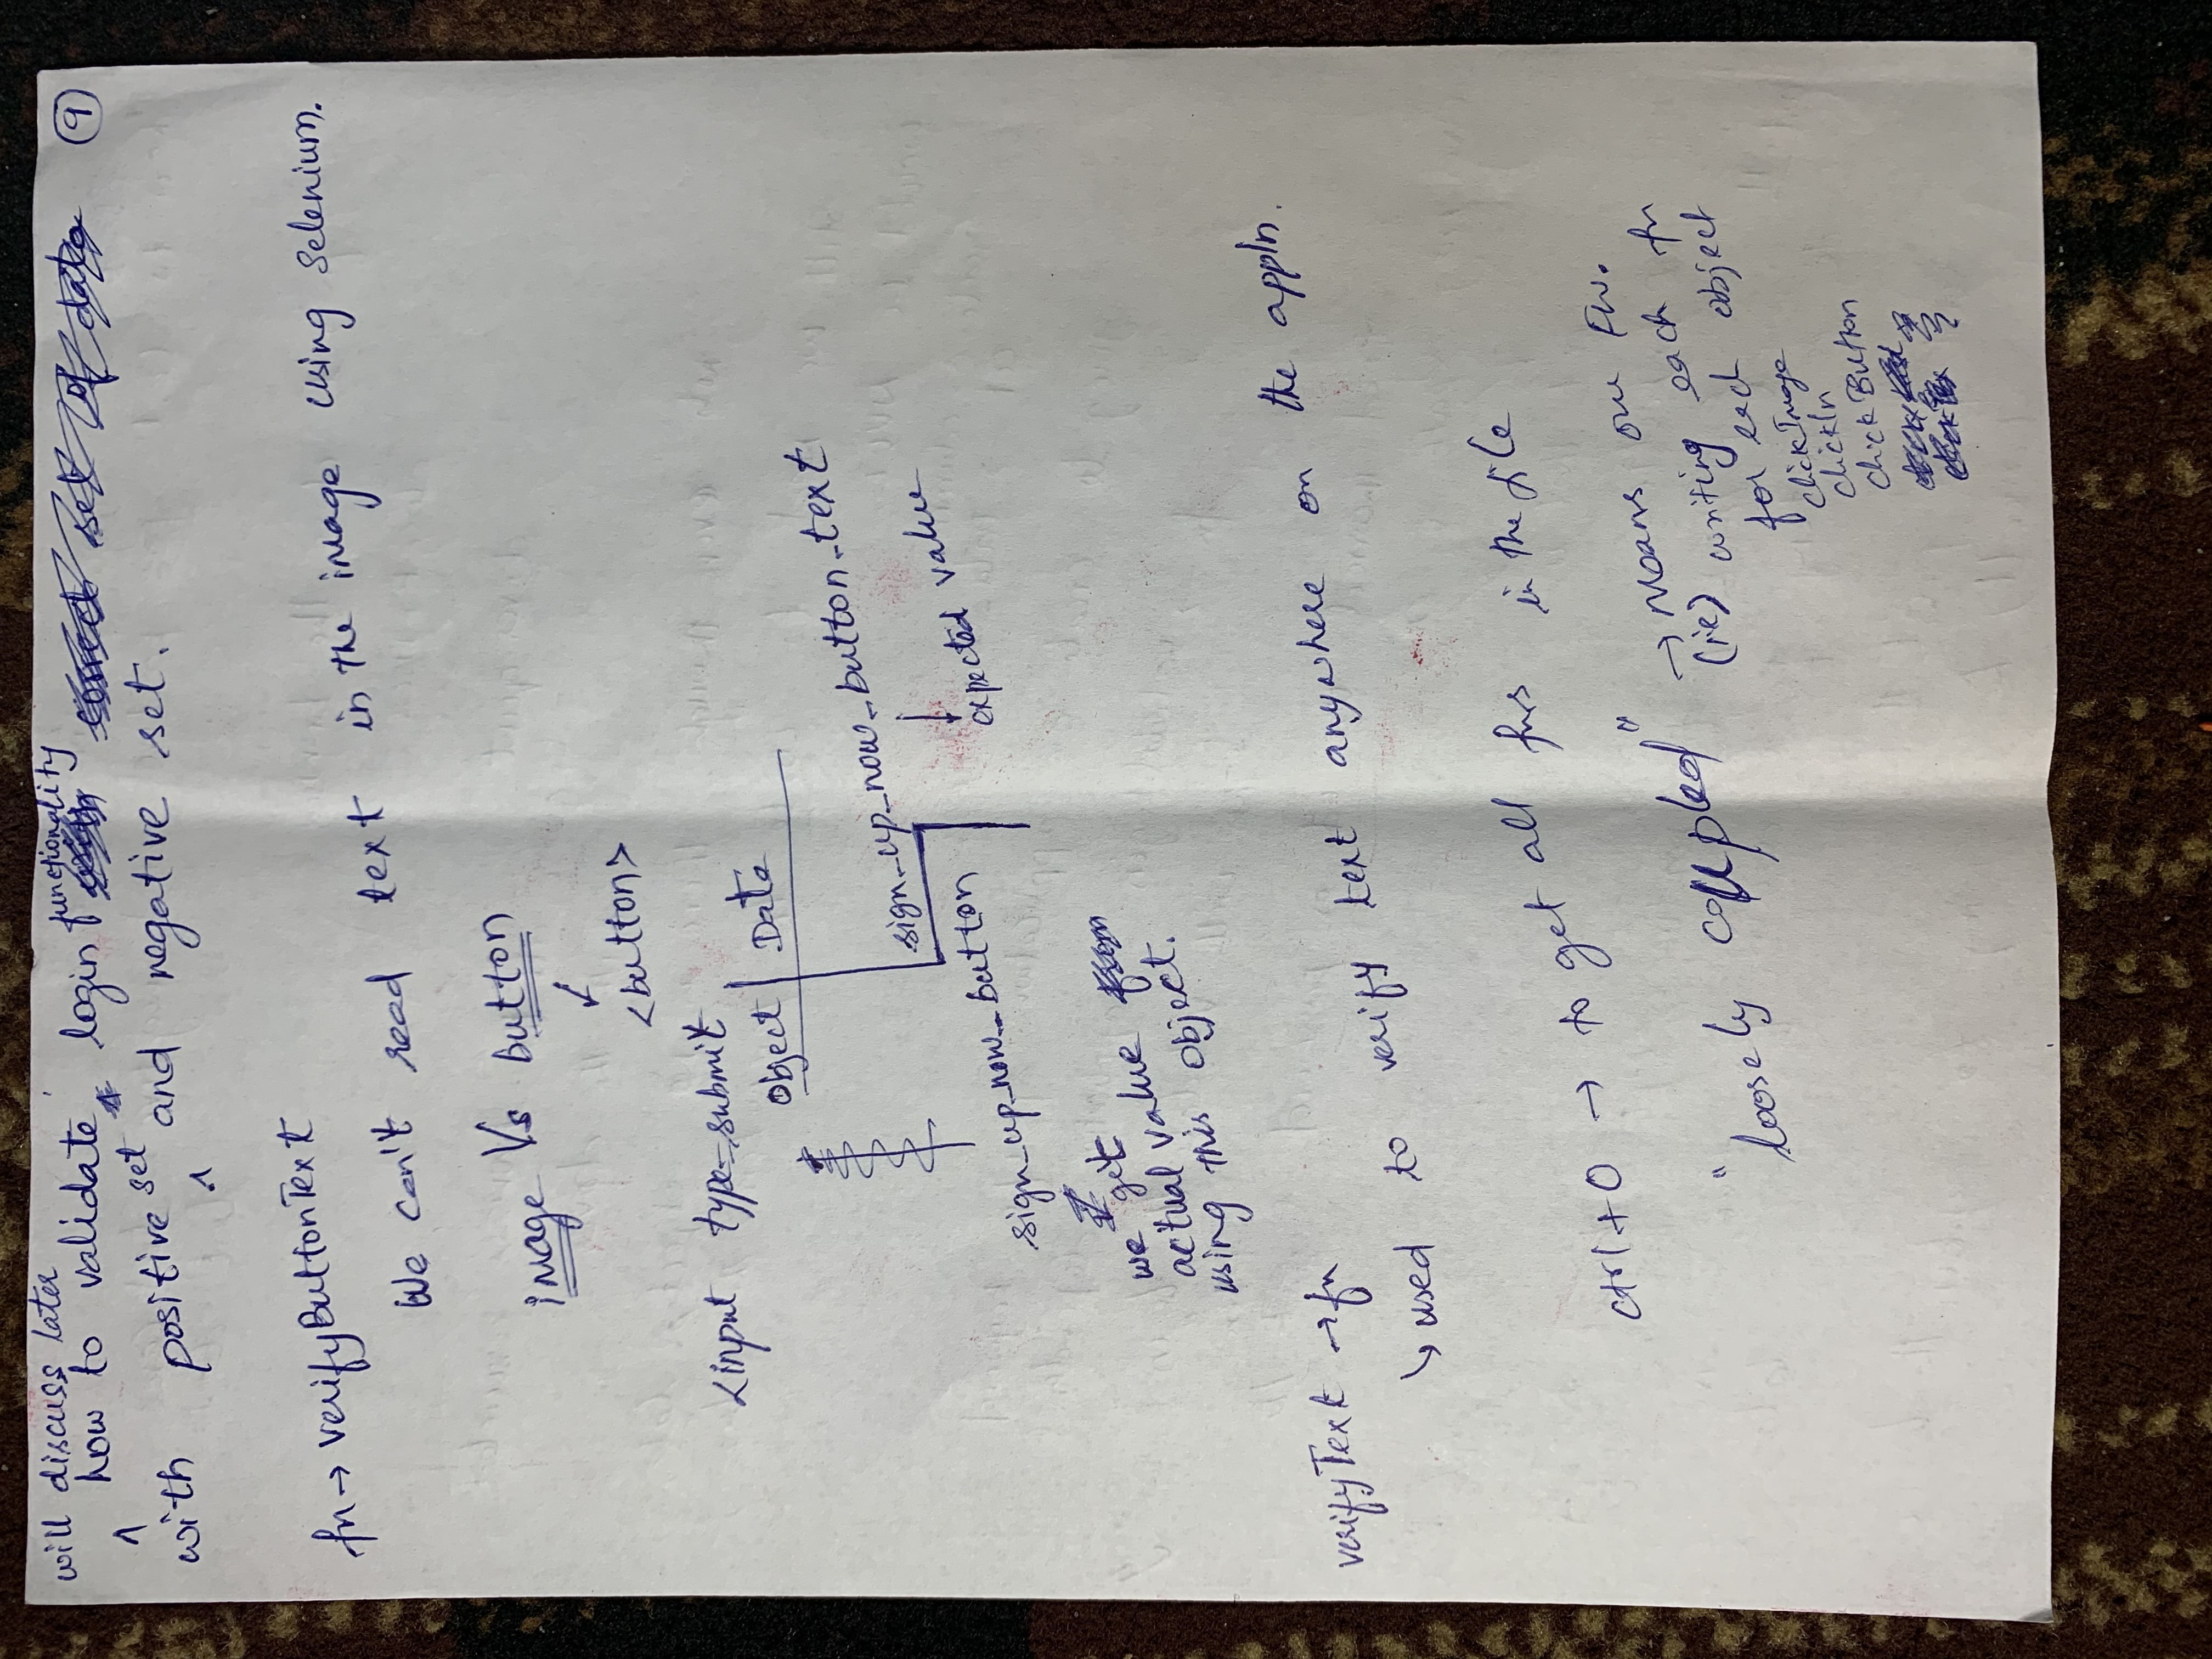 will discuss later
how to validate login functionality
9
with positive set and negative set.
fn → verifyButtonText
We can't read text in the image using Selenium.
image Vs button
<button>
<input type=submit
Object | Data
sign_up_now_button_text
expected value
sign_up_now_button
we get
actual value
using this object.
verifyText → fn
used to verify text anywhere on the appln.
ctrl+O → to get all fns in the file
"loosely coupled" → Means our FW.
(ie) writing each fn
for each object
clickImage
clickln
clickButton